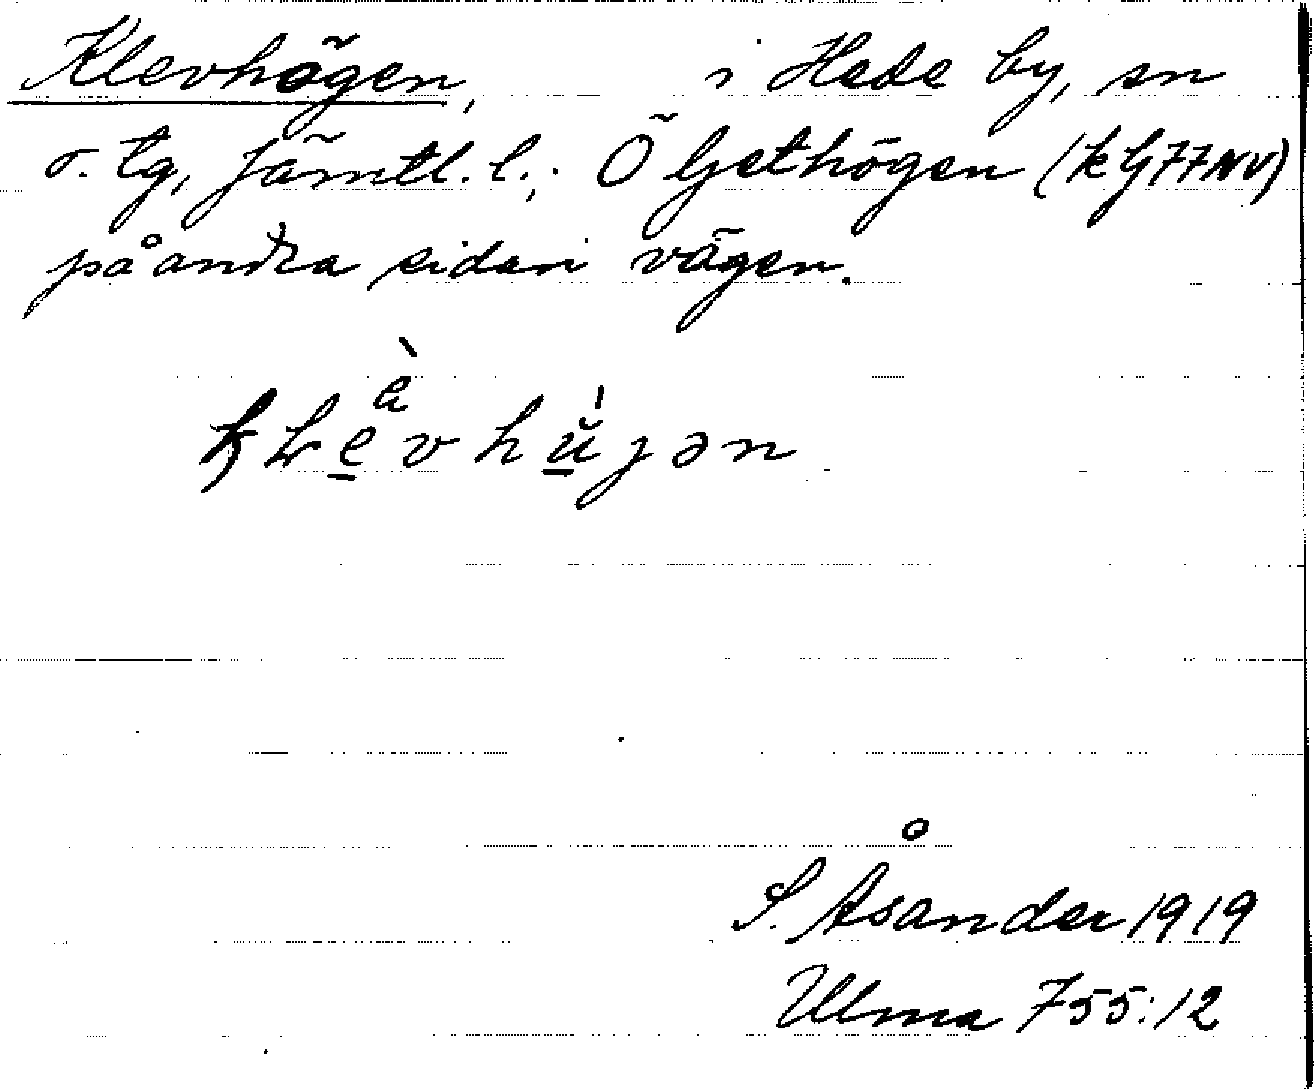 Klevhögen, i Hede by, sn
o. tg, Jämtl. l.; Ö Ljethögen
på andra sidan vägen.
S. Åsander 1919
Ulma 755:12